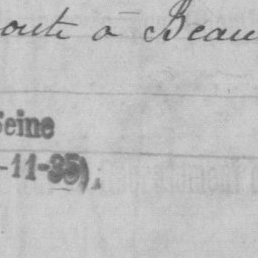 oute à Beau
Seine
-11-35).